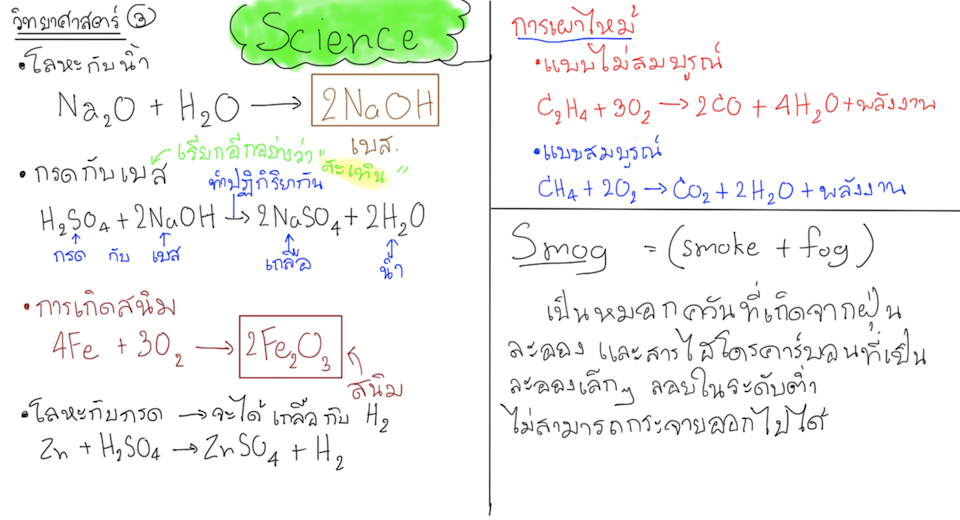 วิทยาศาสตร์ ③
Science
• โลหะกับน้ำ
Na₂O + H₂O → 2NaOH
เบส.
เรียกอีกอย่างว่า "สะเทิน"
• กรดกับเบส
ทำปฏิกิริยากัน
H₂SO₄ + 2NaOH → 2NaSO₄ + 2H₂O
กรด กับ เบส เกลือ น้ำ
• การเกิดสนิม
4Fe + 3O₂ → 2Fe₂O₃
สนิม
• โลหะกับกรด → จะได้ เกลือกับ H₂
Zn + H₂SO₄ → ZnSO₄ + H₂
การเผาไหม้
• แบบไม่สมบูรณ์
C₂H₄ + 3O₂ → 2CO + 4H₂O + พลังงาน
• แบบสมบูรณ์
CH₄ + 2O₂ → CO₂ + 2H₂O + พลังงาน
Smog = (smoke + fog)
เป็นหมอกควันที่เกิดจากฝุ่น
ละออง และสารไฮโดรคาร์บอนที่เป็น
ละอองเล็กๆ ลอยในระดับต่ำ
ไม่สามารถกระจายออกไปได้